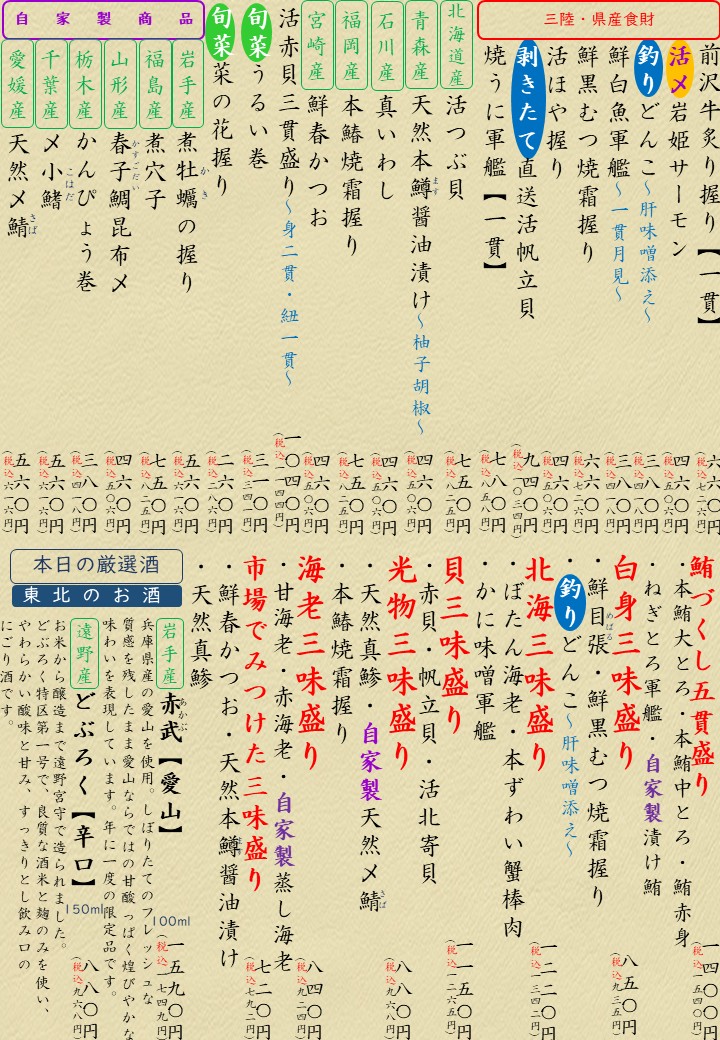 三陸・県産食財
前沢牛炙り握り【一貫】
六六〇円
(税込七二六円)
活〆岩姫サーモン
四六〇円
(税込五〇六円)
釣りどんこ～肝味噌添え～
三八〇円
(税込四一八円)
鮮白魚軍艦～一貫月見～
三八〇円
(税込四一八円)
鮮黒むつ焼霜握り
六六〇円
(税込七二六円)
活ほや握り
四六〇円
(税込五〇六円)
剥きたて直送活帆立貝
九四〇円
(税込一〇三四円)
焼うに軍艦【一貫】
七八〇円
(税込八五八円)
北海道産
活つぶ貝
七五〇円
(税込八二五円)
青森産
天然本鱒醤油漬け～柚子胡椒～
ます
四六〇円
(税込五〇六円)
石川産
真いわし
四六〇円
(税込五〇六円)
福岡産
本鰆焼霜握り
七五〇円
(税込八二五円)
宮崎産
鮮春かつお
四六〇円
(税込五〇六円)
活赤貝三貫盛り～身二貫・紐一貫～
一〇四〇円
(税込一一四四円)
旬菜うるい巻
三一〇円
(税込三四一円)
旬菜菜の花握り
二六〇円
(税込二八六円)
自家製商品
岩手産
煮牡蠣の握り
かき
五六〇円
(税込六一六円)
福島産
煮穴子
七五〇円
(税込八二五円)
山形産
春子鯛昆布〆
かすごだい
四六〇円
(税込五〇六円)
栃木産
かんぴょう巻
三八〇円
(税込四一八円)
千葉産
〆小鰭
こはだ
五六〇円
(税込六一六円)
愛媛産
天然〆鯖
さば
五六〇円
(税込六一六円)
鮪づくし五貫盛り
・本鮪大とろ・本鮪中とろ・鮪赤身
・ねぎとろ軍艦・自家製漬け鮪
一四〇〇円
(税込一五四〇円)
白身三味盛り
・鮮目張・鮮黒むつ焼霜握り
めばる
釣りどんこ～肝味噌添え～
八五〇円
(税込九三五円)
北海三味盛り
・ぼたん海老・本ずわい蟹棒肉
・かに味噌軍艦
一二二〇円
(税込一三四二円)
貝三味盛り
・赤貝・帆立貝・活北寄貝
一一五〇円
(税込一二六五円)
光物三味盛り
・天然真鯵・自家製天然〆鯖
さば
・本鰆焼霜握り
八八〇円
(税込九六八円)
海老三味盛り
・甘海老・赤海老・自家製蒸し海老
八四〇円
(税込九二四円)
市場でみつけた三味盛り
・鮮春かつお・天然本鱒醤油漬け
ます
・天然真鯵
七二〇円
(税込七九二円)
本日の厳選酒
東北のお酒
岩手産
赤武【愛山】
あかぶ
100ml
一五九〇円
(税込一七四九円)
兵庫県産の愛山を使用。しぼりたてのフレッシュな
質感を残したまま愛山ならではの甘酸っぱく煌びやかな
味わいを表現しています。年に一度の限定品です。
遠野産
どぶろく【辛口】
150ml
八八〇円
(税込九六八円)
お米から醸造まで遠野宮守で造られました。
どぶろく特区第一号で、良質な酒米と麹のみを使い、
やわらかい酸味と甘み、すっきりとし飲み口の
にごり酒です。